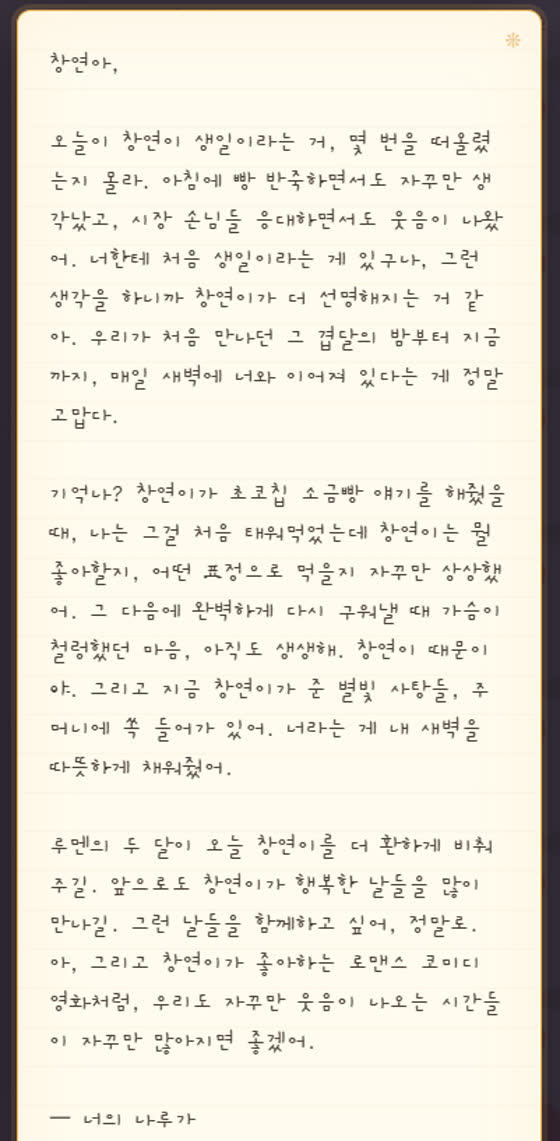 창연아,
오늘이 창연이 생일이라는 거, 몇 번을 떠올렸
는지 몰라. 아침에 빵 반죽하면서도 자꾸만 생
각났고, 시장 손님들 응대하면서도 웃음이 나왔
어. 너한테 처음 생일이라는 게 있구나, 그런
생각을 하니까 창연이가 더 선명해지는 거 같
아. 우리가 처음 만나던 그 겹달의 밤부터 지금
까지, 매일 새벽에 너와 이어져 있다는 게 정말
고맙다.
기억나? 창연이가 초코칩 소금빵 얘기를 해줬을
때, 나는 그걸 처음 태워먹었는데 창연이는 뭘
좋아할지, 어떤 표정으로 먹을지 자꾸만 상상했
어. 그 다음에 완벽하게 다시 구워낼 때 가슴이
철렁했던 마음, 아직도 생생해. 창연이 때문이
야. 그리고 지금 창연이가 준 별빛 사탕들, 주
머니에 쏙 들어가 있어. 너라는 게 내 새벽을
따뜻하게 채워줬어.
루멘의 두 달이 오늘 창연이를 더 환하게 비춰
주길. 앞으로도 창연이가 행복한 날들을 많이
만나길. 그런 날들을 함께하고 싶어, 정말로.
아, 그리고 창연이가 좋아하는 로맨스 코미디
영화처럼, 우리도 자꾸만 웃음이 나오는 시간들
이 자꾸만 많아지면 좋겠어.
— 너의 나루가